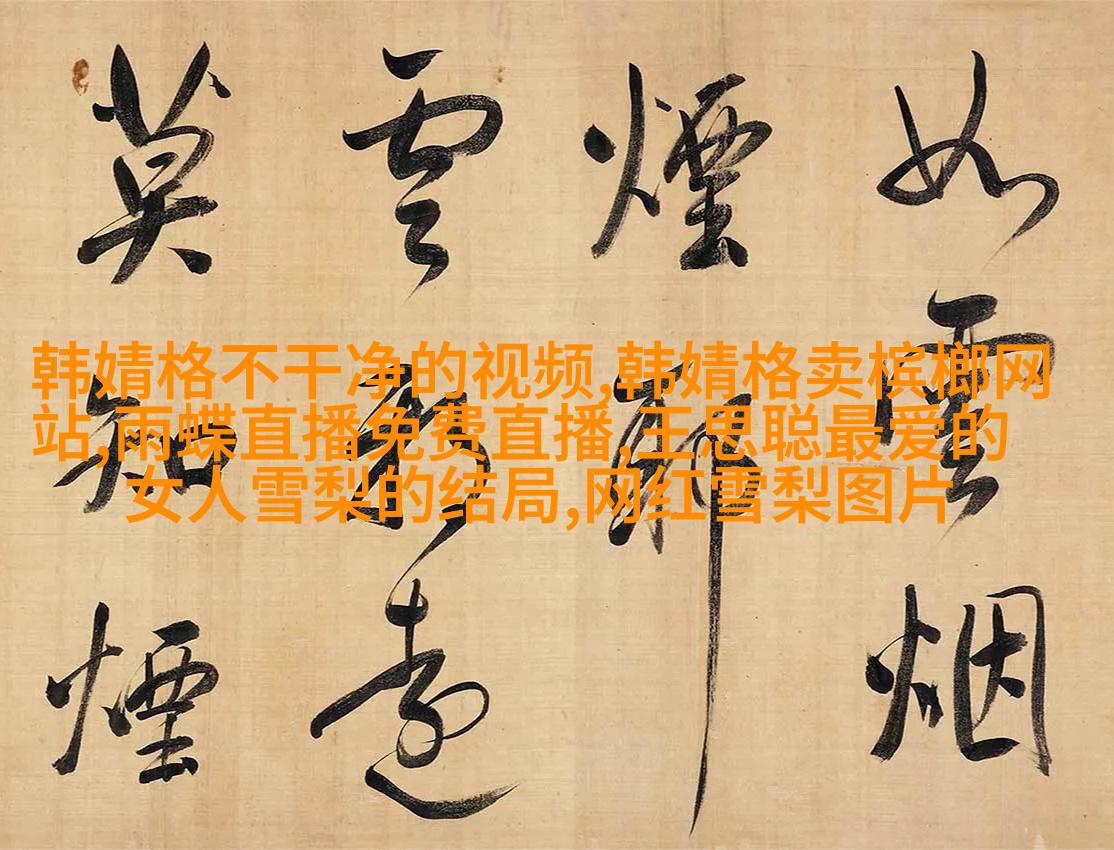 韩婧格不干净的视频,韩婧格卖槟榔网
站,雨蝶直播免费直播,王思聪最爱的
女人雪梨的结局,网红雪梨图片
如雲烟
煙
雲遠
莫知煙